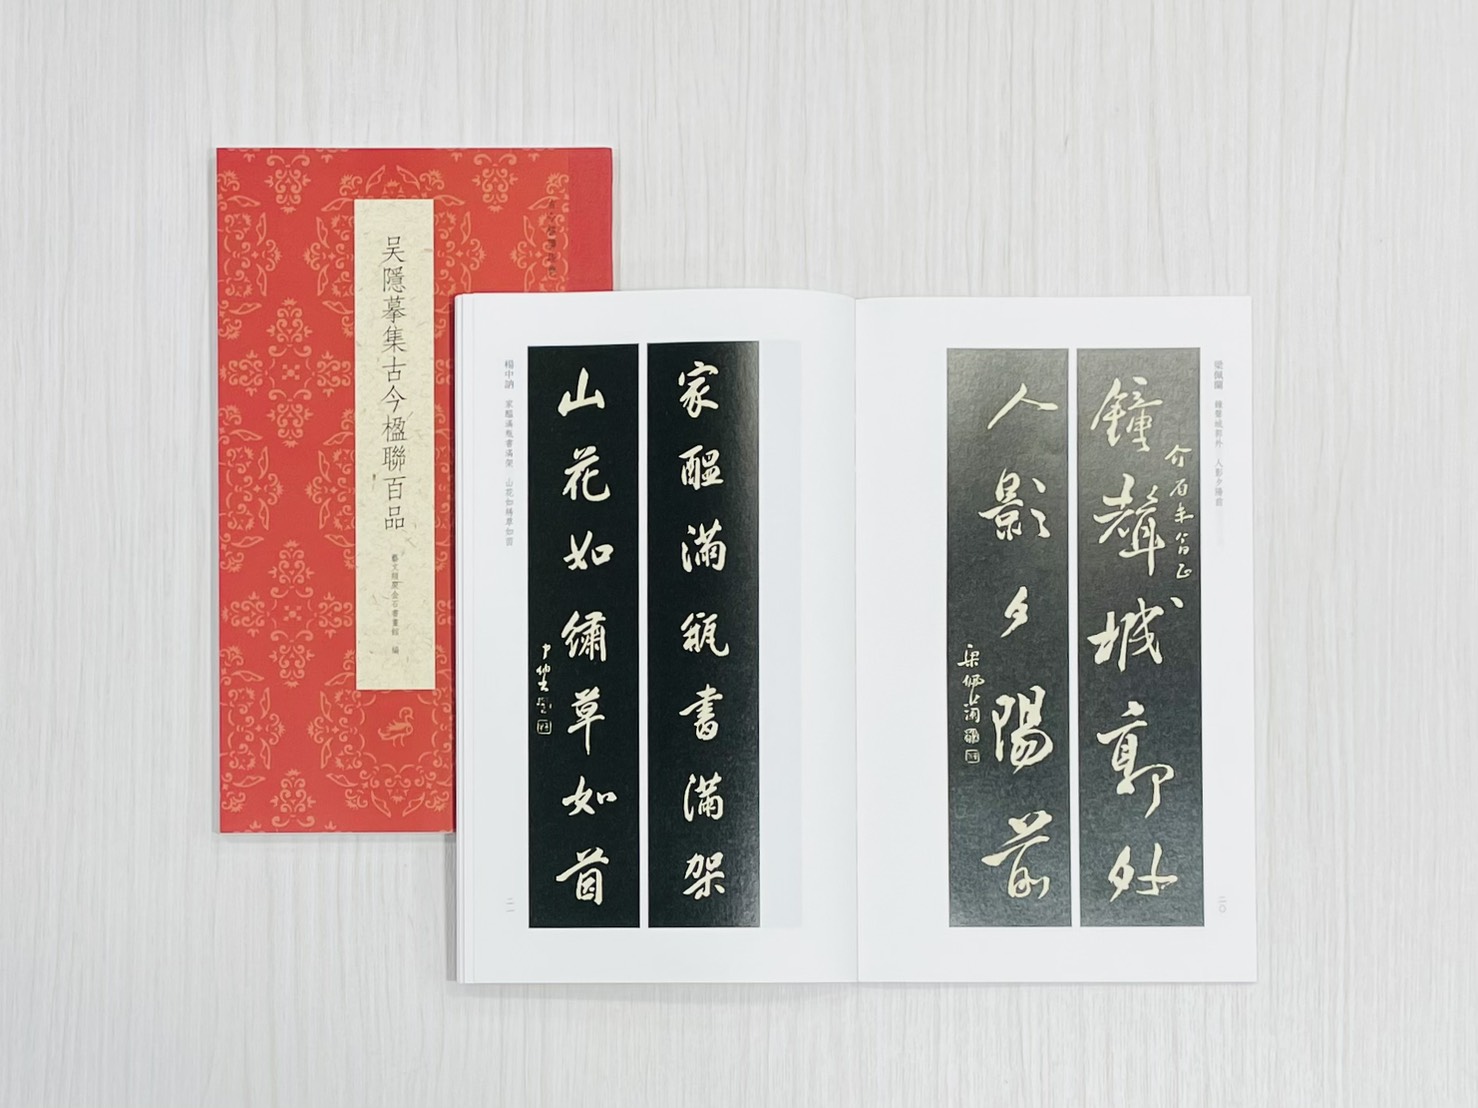 吴隱摹集古今楹聯百品
藝文類聚金石書畫館 編
梁佩蘭 鐘聲城郭外 人影夕陽前
介石年翁正
鐘聲城郭外
人影夕陽前
梁佩蘭
二〇
家醞滿瓶書滿架
山花如繡草如茵
中訥
楊中訥 家醞滿瓶書滿架 山花如繡草如茵
二一